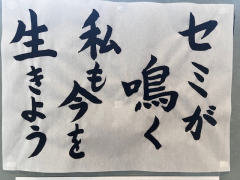 セミが
鳴く
私も今を
生きよう